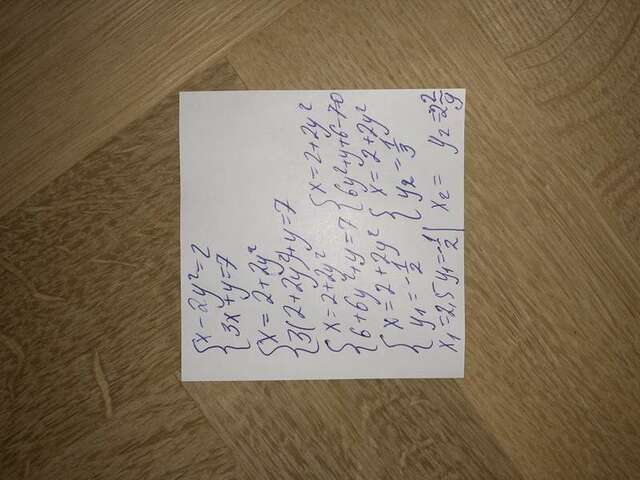 x - 2y² = 2
3x + y = 7
x = 2 + 2y²
3(2 + 2y²) + y = 7
x = 2 + 2y²
6 + 6y² + y = 7
x = 2 + 2y²
6y² + y + 6 - 7 = 0
x = 2 + 2y²
y₁ = -1/2
x = 2 + 2y²
y₂ = 1/3
x₁ = 2,5 y₁ = -1/2
x₂ = y₂ = 2 2/9